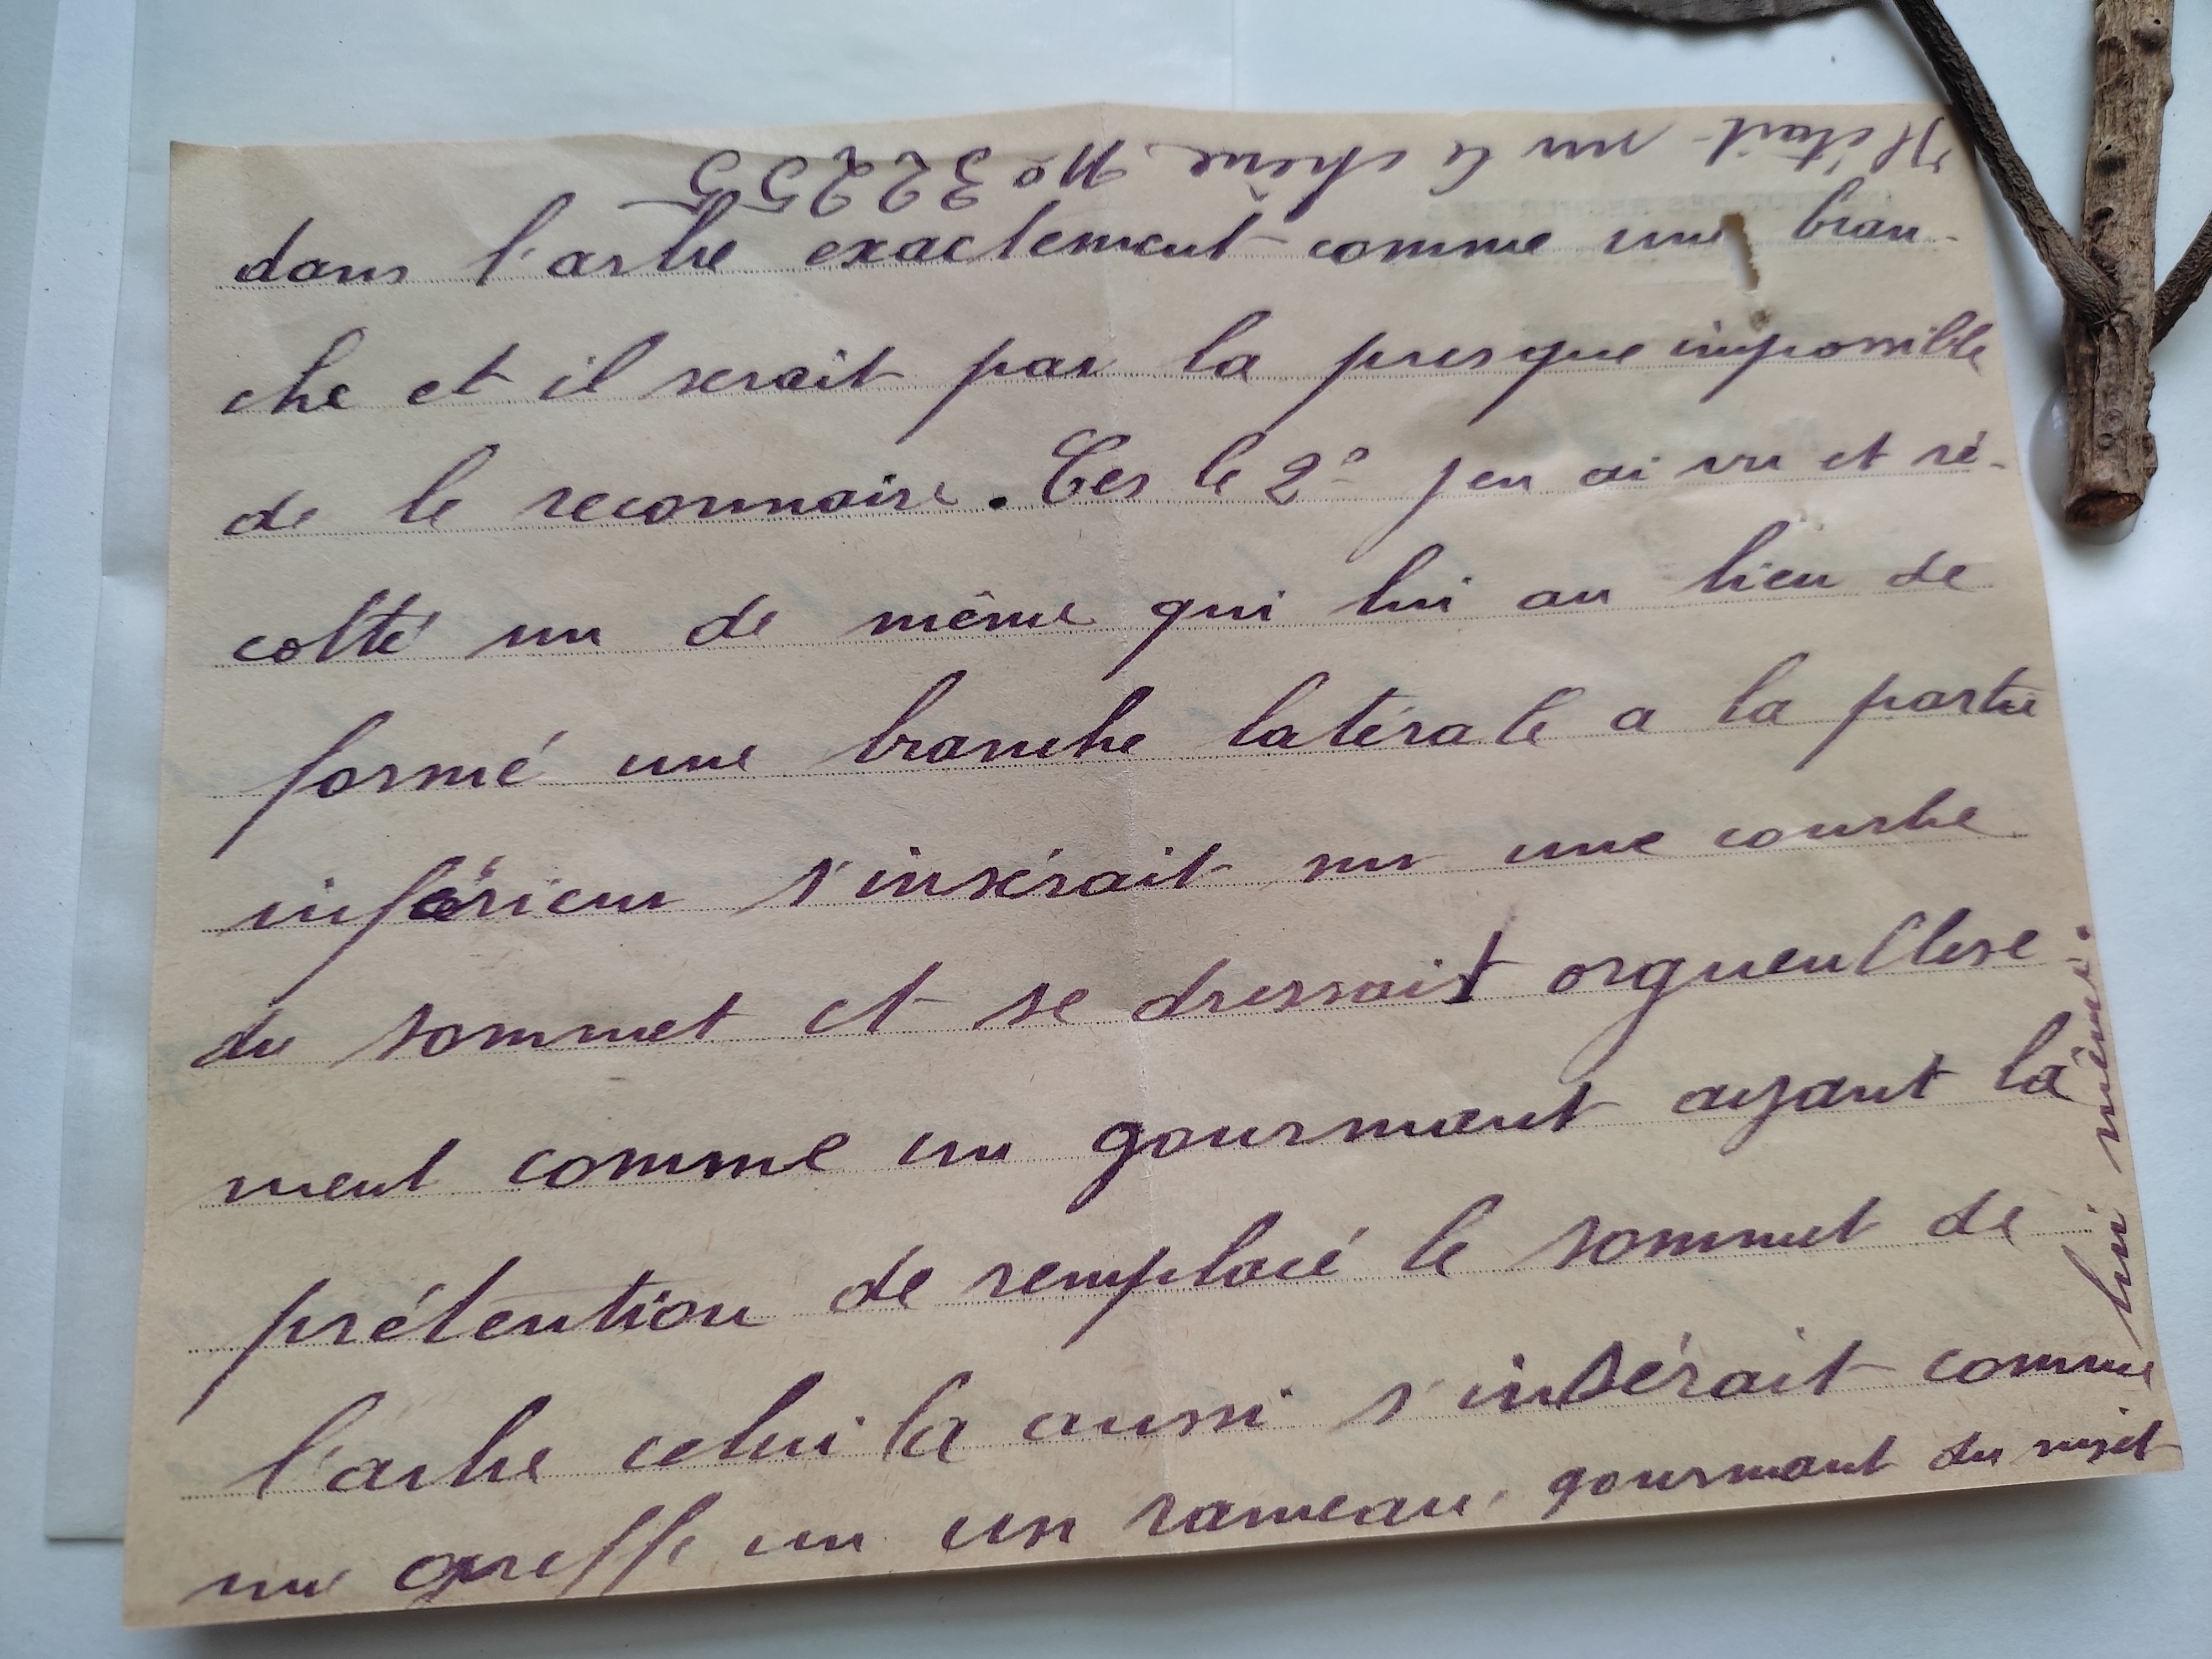 Il était sur le chêne No 32255
dans l'arbre exactement comme une bran-
che et il serait par la presque impossible
de le reconnaire. Ces le 2° jen ai vu et ré-
colté un de même qui lui au lieu de
formé une branche latérale a la partie
inférieur s'insérait sur une courbe
du sommet et se dressait orgueullese-
ment comme un gourmant ayant la
prétention de remplacé le sommet de
l'arbre celui la aussi s'insérait comme
une greffe sur un rameau gourmant du sujet
lui même.